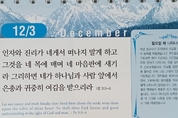 12/3
December
인자와 진리가 네게서 떠나지 말게 하고
그것을 네 목에 매며 네 마음판에 새기
라 그리하면 네가 하나님과 사람 앞에서
은총과 귀중히 여김을 받으리라
잠 3:3-4
Let not mercy and truth forsake thee: bind them about thy neck; write them
upon the table of thine heart: So shalt thou find favour and good
understanding in the sight of God and man.